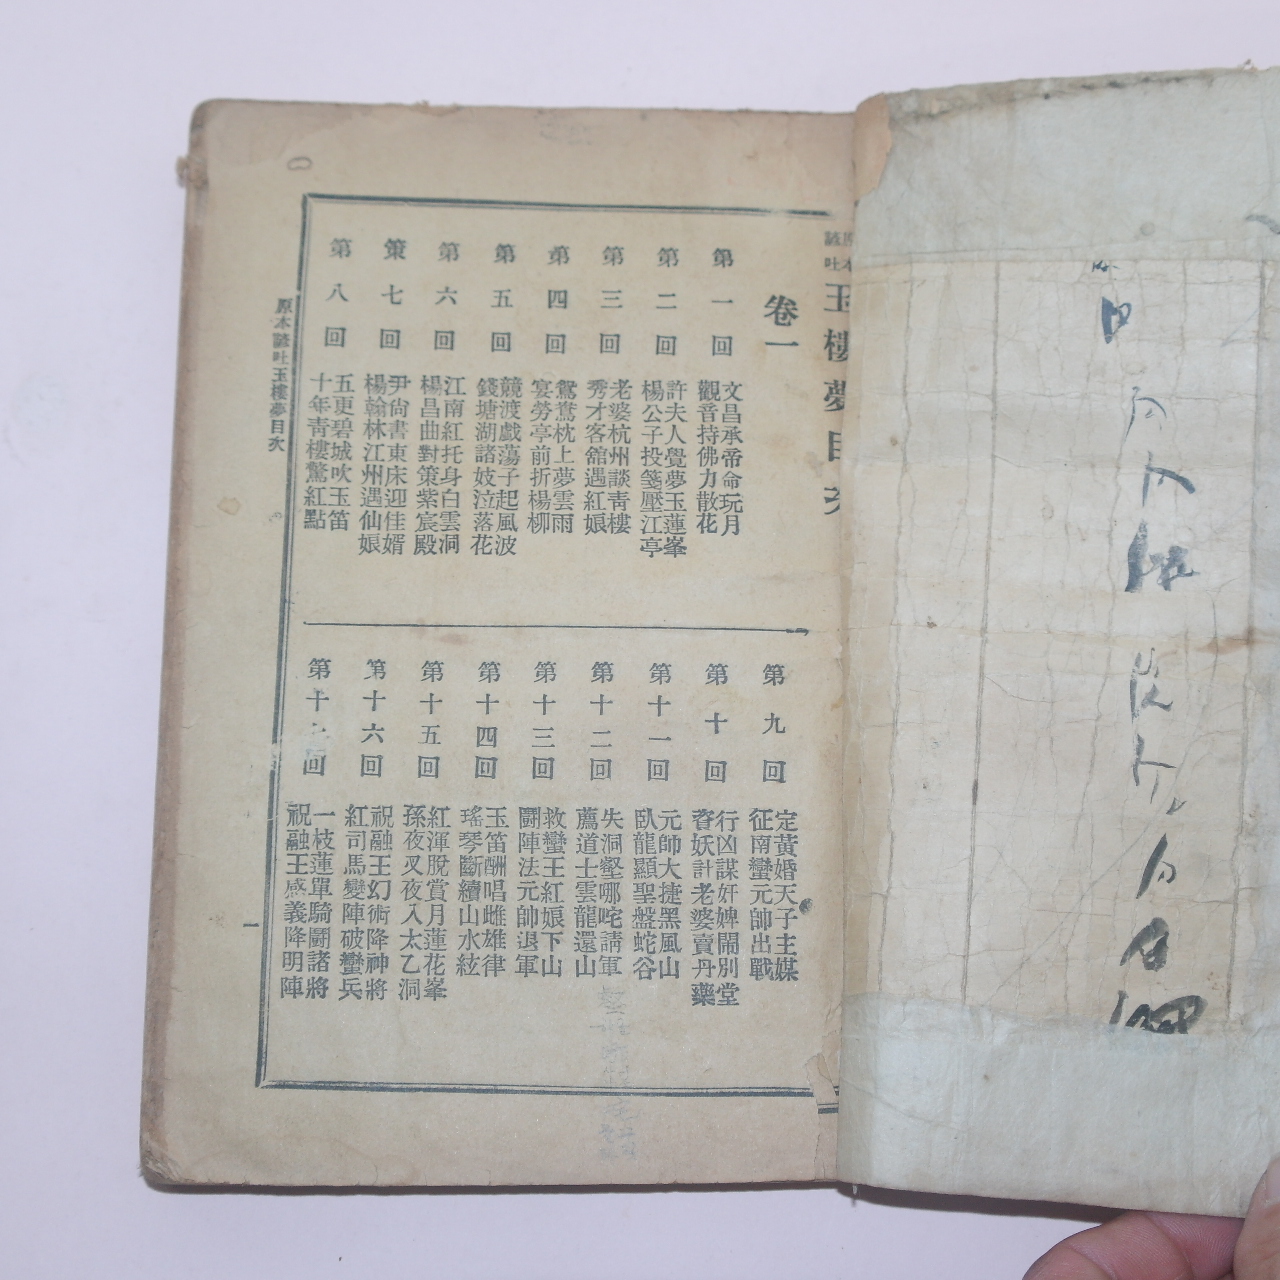 原本
諺吐
玉樓夢目次
卷一
第一回
文昌承帝命玩月
觀音持佛力散花
第二回
許夫人覺夢玉蓮峯
楊公子投箋壓江亭
第三回
老婆杭州談靑樓
秀才客舘遇紅娘
第四回
鴛鴦枕上夢雲雨
宴勞亭前折楊柳
第五回
競渡戲蕩子起風波
錢塘湖諸妓泣落花
第六回
江南紅托身白雲洞
楊昌曲對策紫宸殿
第七回
尹尙書東床迎佳婿
楊翰林江州遇仙娘
第八回
五更碧城吹玉笛
十年靑樓驚紅點
第九回
定黃婚天子主媒
征南蠻元帥出戰
第十回
行凶謀奸婢鬧別堂
資妖計老婆賣丹藥
第十一回
元帥大捷黑風山
臥龍顯聖盤蛇谷
第十二回
失洞壑哪咤請軍
薦道士雲龍還山
第十三回
救蠻王紅娘下山
鬪陣法元帥退軍
第十四回
玉笛酬唱雌雄律
瑤琴斷續山水絃
第十五回
紅渾脫賞月蓮花峯
孫夜叉夜入太乙洞
第十六回
祝融王幻術降神將
紅司馬變陣破蠻兵
第十七回
一枝蓮單騎鬪諸將
祝融王感義降明陣
原本諺吐玉樓夢目次
一